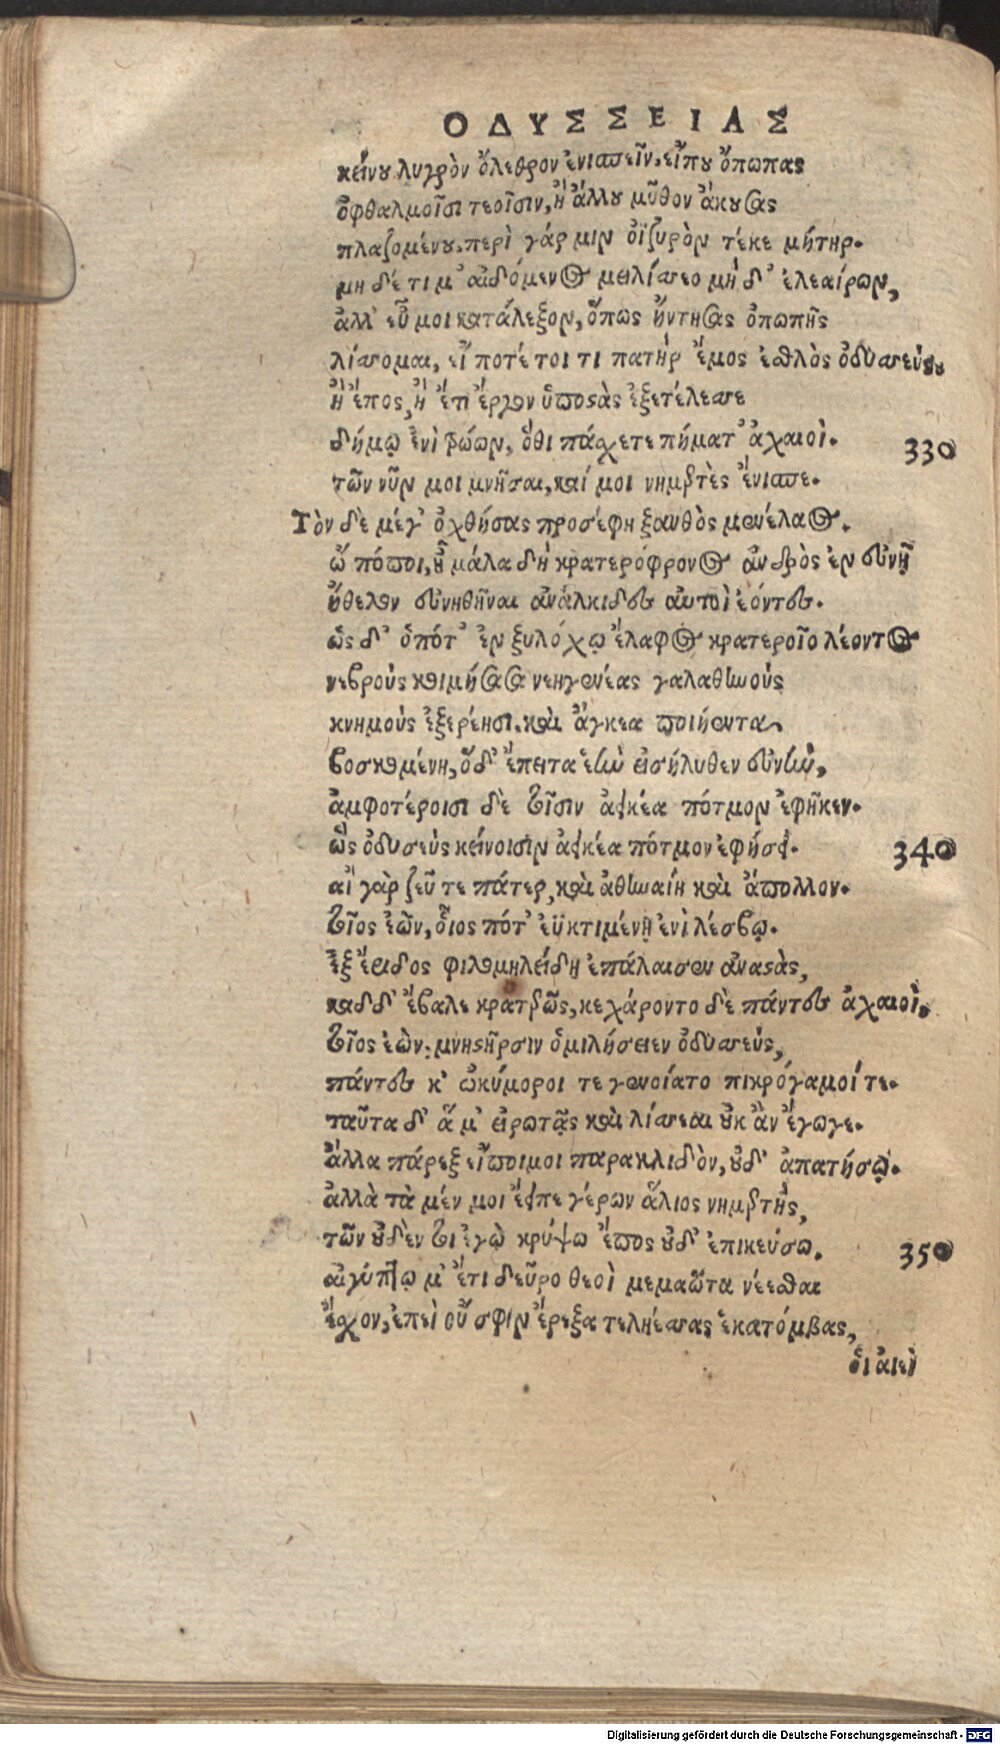 ΟΔΥΣΣΕΙΑΣ
κείνου λυγρὸν ὄλεθρον ἐνισπεῖν, εἴπου ὄπωπας
ὀφθαλμοῖσι τεοῖσιν, ἢ ἄλλου μῦθον ἄκουσας
πλαζομένου. περὶ γάρ μιν ὀϊζυρὸν τέκε μήτηρ.
μη δέ τι μ' αἰδόμενος μειλίσσεο μή δ' ἐλεαίρων,
ἀλλ' εὖ μοι κατάλεξον, ὅπως ἤντησας ὀπωπῆς
λίσσομαι, εἴ ποτέ τοι τι πατὴρ ἔμος ἐσθλὸς ὀδυσσεύς,
ἢ ἔπος, ἢ ἔτι ἔργον ὑποστὰς ἐξετέλεσσε
δήμῳ ἔνι τρώων, ὅθι πάσχετε πήματ' ἀχαιοὶ.
330
τῶν νῦν μοι μνῆσαι, καί μοι νημερτὲς ἔνισπε.
Τὸν δὲ μέγ' ὀχθήσας προσέφη ξανθὸς μενέλαος.
ὢ πόποι, ἦ μάλα δὴ κρατερόφρονος ἀνδρὸς ἐν εὐνῇ
ἤθελον εὐνηθῆναι ἀνάλκιδες αὐτοὶ ἐόντες.
ὡς δ' ὁπότ' ἐν ξυλόχῳ ἔλαφος κρατεροῖο λέοντος
νεβροὺς κοιμήσασα νεηγενέας γαλαθηνοὺς
κνημοὺς ἐξερέησι. καὶ ἄγκεα ποιήεντα,
βοσκομένη, ὅδ' ἔπειτα ἑὴν εἰσήλυθεν εὐνὴν,
ἀμφοτέροισι δὲ τοῖσιν ἀεικέα πότμον ἐφῆκεν.
ὣς ὀδυσεὺς κείνοισιν ἀεικέα πότμον ἐφήσει.
340
αἲ γὰρ ζεῦ τε πάτερ, καὶ ἀθηναίη καὶ ἄπολλον.
τοῖος ἐὼν, οἷος πότ' ἐϋκτιμένῃ ἐνὶ λέσβῳ.
ἐξ ἔριδος φιλομηλείδῃ ἐπάλαισεν ἀναστὰς,
καδδ' ἔβαλε κρατερῶς, κεχάροντο δὲ πάντες ἀχαιοὶ,
τοῖος ἐὼν, μνηστῆρσιν ὁμιλήσειεν ὀδυσσεύς,
πάντες κ' ὠκύμοροι τε γενοίατο πικρόγαμοί τε.
ταῦτα δ' ἅ μ' εἰρωτᾷς καὶ λίσσεαι οὐκ ἂν ἔγωγε.
ἄλλα πάρεξ εἴποιμοι παρακλιδὸν, οὐδ' ἀπατήσῳ.
ἀλλὰ τὰ μέν μοι ἔειπε γέρων ἅλιος νημερτὴς,
τῶν οὐδὲν τοι ἐγὼ κρύψω ἔπος οὐδ' ἐπικεύσω.
350
αἰγύπτῳ μ' ἔτι δεῦρο θεοὶ μεμαῶτα νέεσθαι
ἔσχον, ἐπεὶ οὔ σφιν ἔρεξα τεληέσσας ἑκατόμβας,
ὁι ἀιεὶ
Digitalisierung gefördert durch die Deutsche Forschungsgemeinschaft - DFG